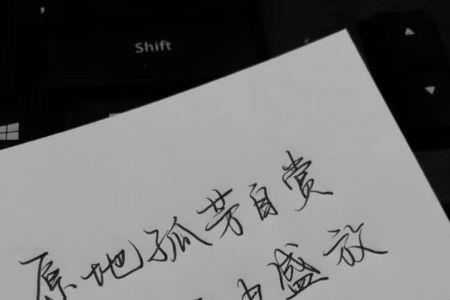 Shift
原地孤芳自赏
盛放